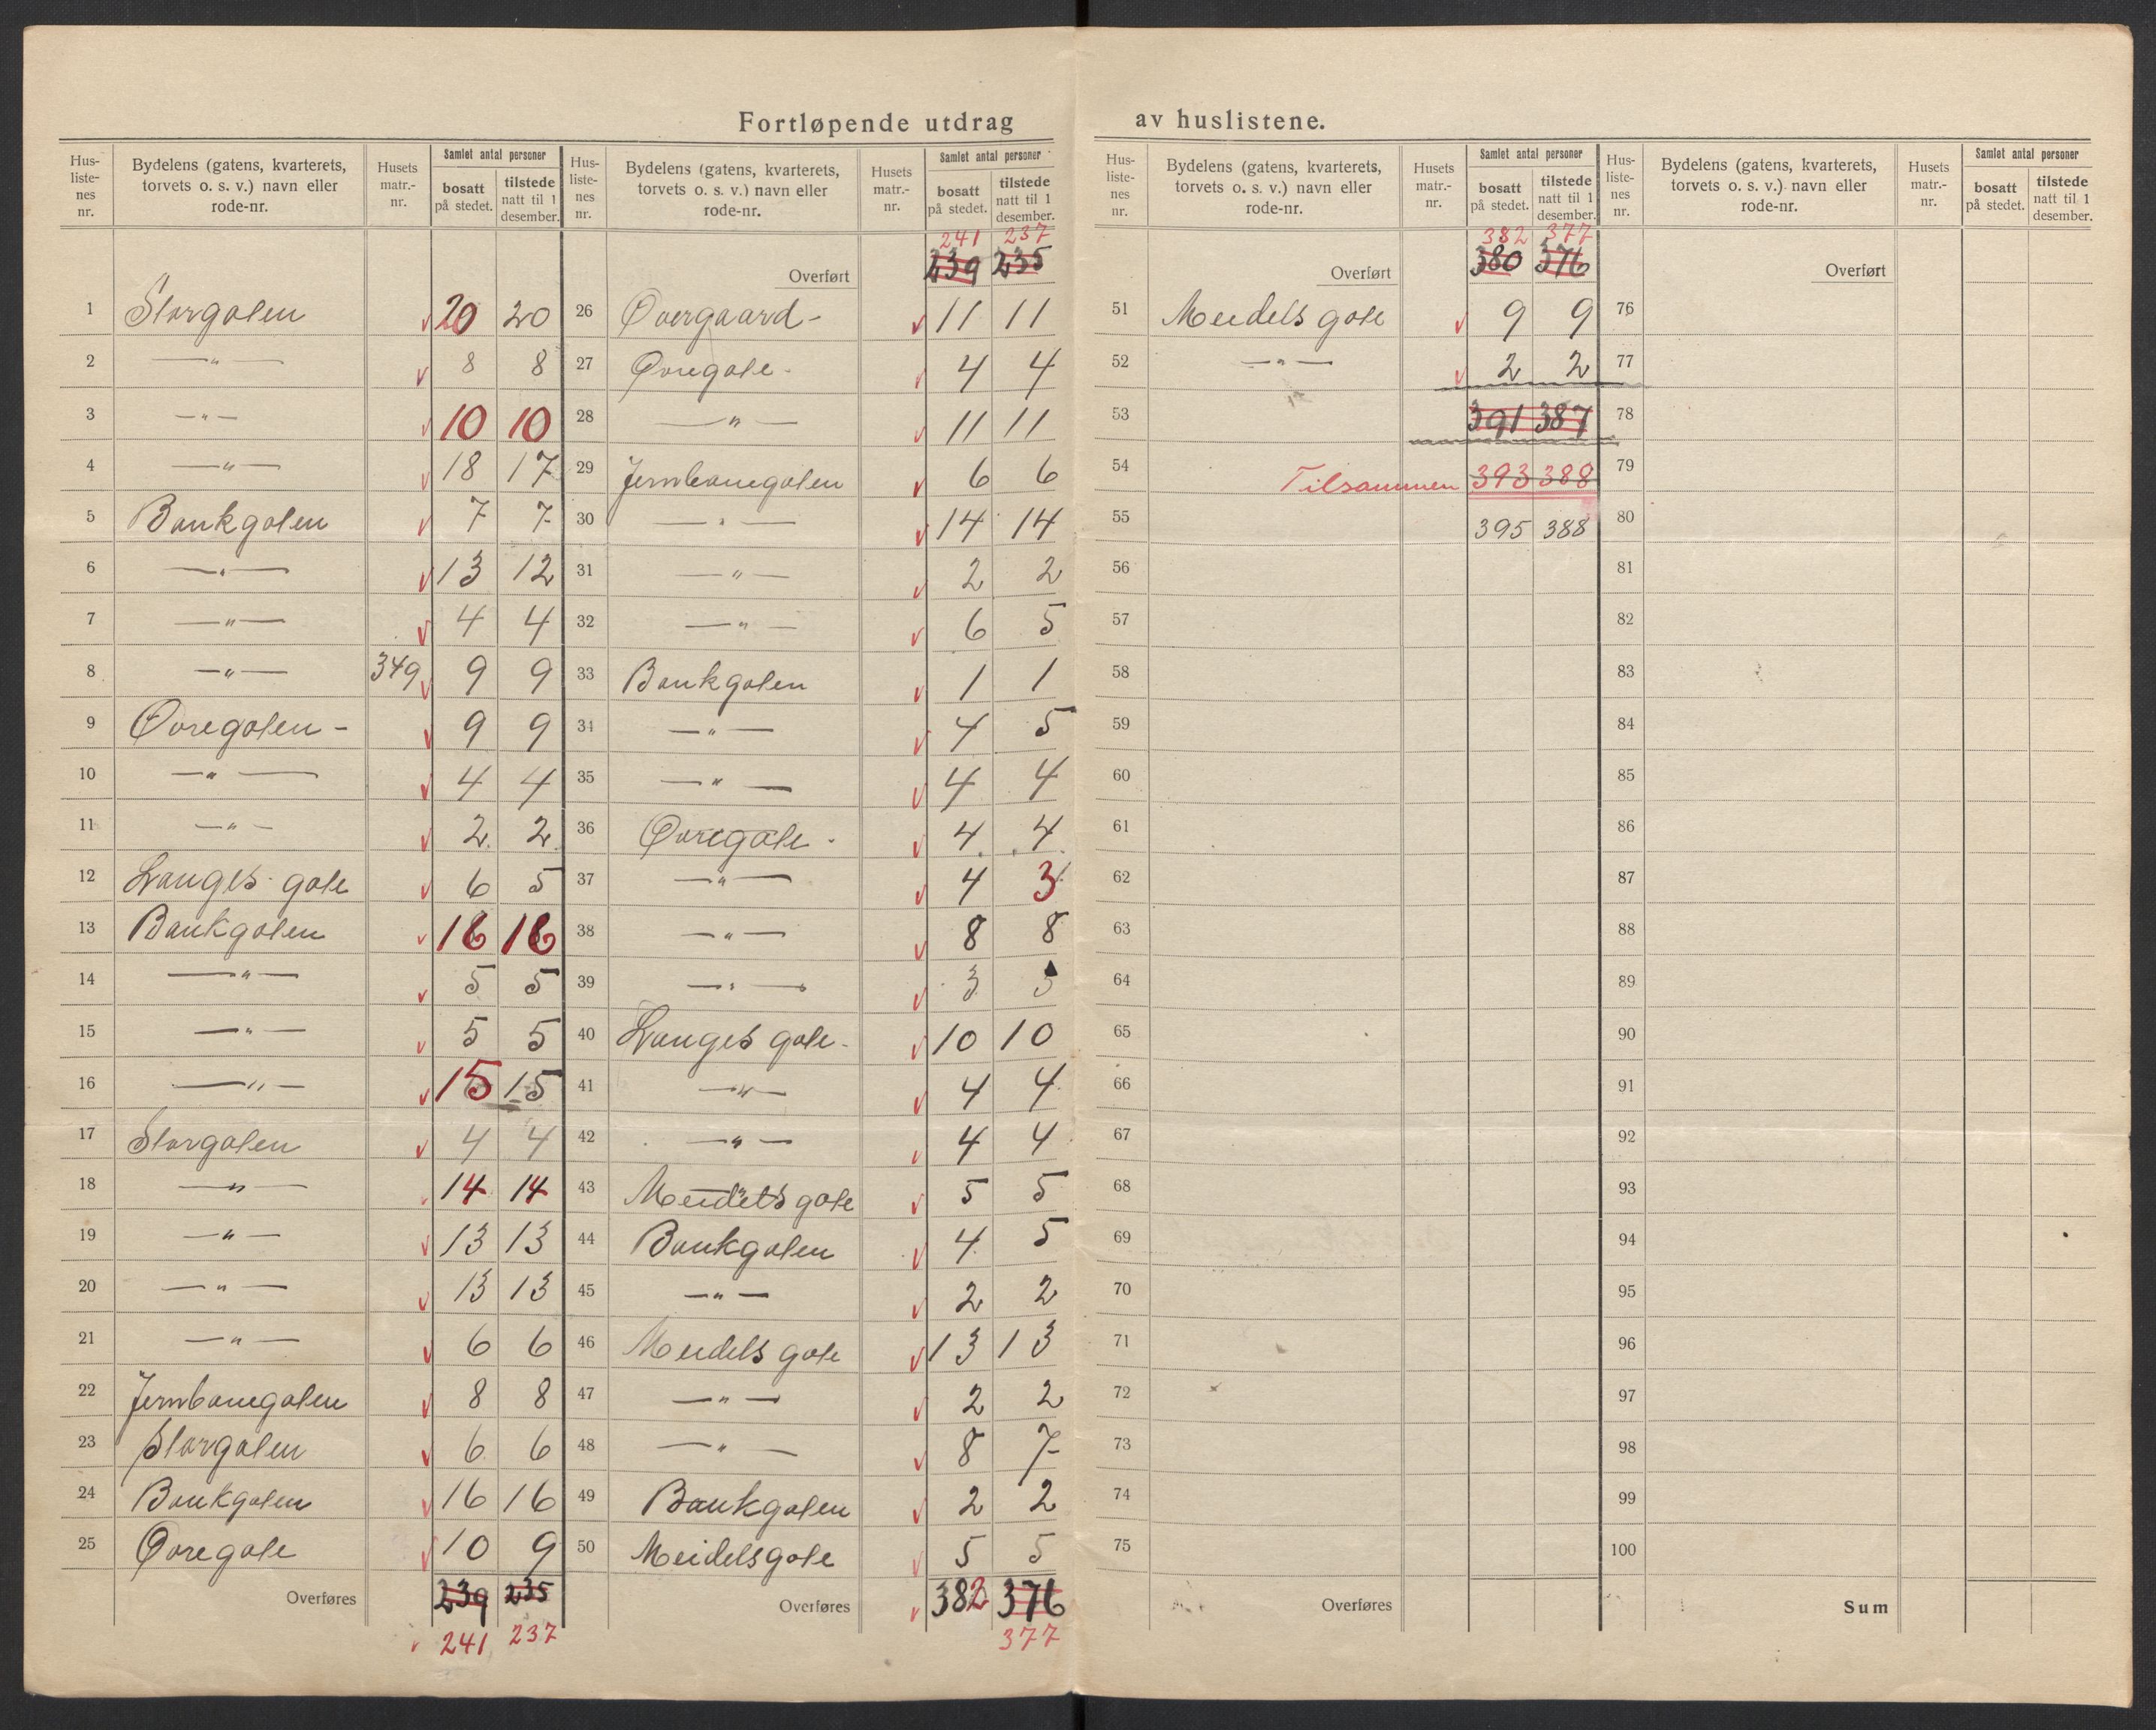 Fortløpende utdrag av huslistene.
Hus-listenes nr. | Bydelens (gatens, kvarterets, torvets o. s. v.) navn eller rode-nr. | Husets matr.-nr. | Samlet antal personer | bosatt på stedet. | tilstede natt til 1 desember.
1 Storgaten 20 20
2 —"— 8 8
3 —"— 10 10
4 —"— 18 17
5 Bankgaten 7 7
6 —"— 13 12
7 —"— 4 4
8 —"— 349 9 9
9 Øvregaten - 9 9
10 —"— 4 4
11 —"— 2 2
12 Langes gate 6 5
13 Bankgaten 16 16
14 —"— 5 5
15 —"— 5 5
16 —"— 15 15
17 Storgaten 4 4
18 —"— 14 14
19 —"— 13 13
20 —"— 13 13
21 —"— 6 6
22 Jernbanegaten 8 8
23 Storgaten 6 6
24 Bankgaten 16 16
25 Øvregate 10 9
Overføres 239 235
241 237
Hus-listenes nr. | Bydelens (gatens, kvarterets, torvets o. s. v.) navn eller rode-nr. | Husets matr.-nr. | Samlet antal personer | bosatt på stedet. | tilstede natt til 1 desember.
241 237
Overført 239 235
26 Overgaard - 11 11
27 Øvregate - 4 4
28 —"— 11 11
29 Jernbanegaten 6 6
30 —"— 14 14
31 —"— 2 2
32 —"— 6 5
33 Bankgaten 1 1
34 —"— 4 5
35 —"— 4 4
36 Øvregate - 4 4
37 —"— 4 3
38 —"— 8 8
39 —"— 3 3
40 Langes gate - 10 10
41 —"— 4 4
42 —"— 4 4
43 Meidels gate 5 5
44 Bankgaten 4 5
45 —"— 2 2
46 Meidels gate 13 13
47 —"— 2 2
48 —"— 8 7
49 Bankgaten 2 2
50 Meidelsgate 5 5
Overføres 382 376
377
Hus-listenes nr. | Bydelens (gatens, kvarterets, torvets o. s. v.) navn eller rode-nr. | Husets matr.-nr. | Samlet antal personer | bosatt på stedet. | tilstede natt til 1 desember.
382 377
Overført 380 376
51 Meidels gate 9 9
52 —"— 2 2
53 391 387
54 Tilsammen 393 388
55 395 388
56
57
58
59
60
61
62
63
64
65
66
67
68
69
70
71
72
73
74
75
Overføres
Hus-listenes nr. | Bydelens (gatens, kvarterets, torvets o. s. v.) navn eller rode-nr. | Husets matr.-nr. | Samlet antal personer | bosatt på stedet. | tilstede natt til 1 desember.
Overført
76
77
78
79
80
81
82
83
84
85
86
87
88
89
90
91
92
93
94
95
96
97
98
99
100
Sum